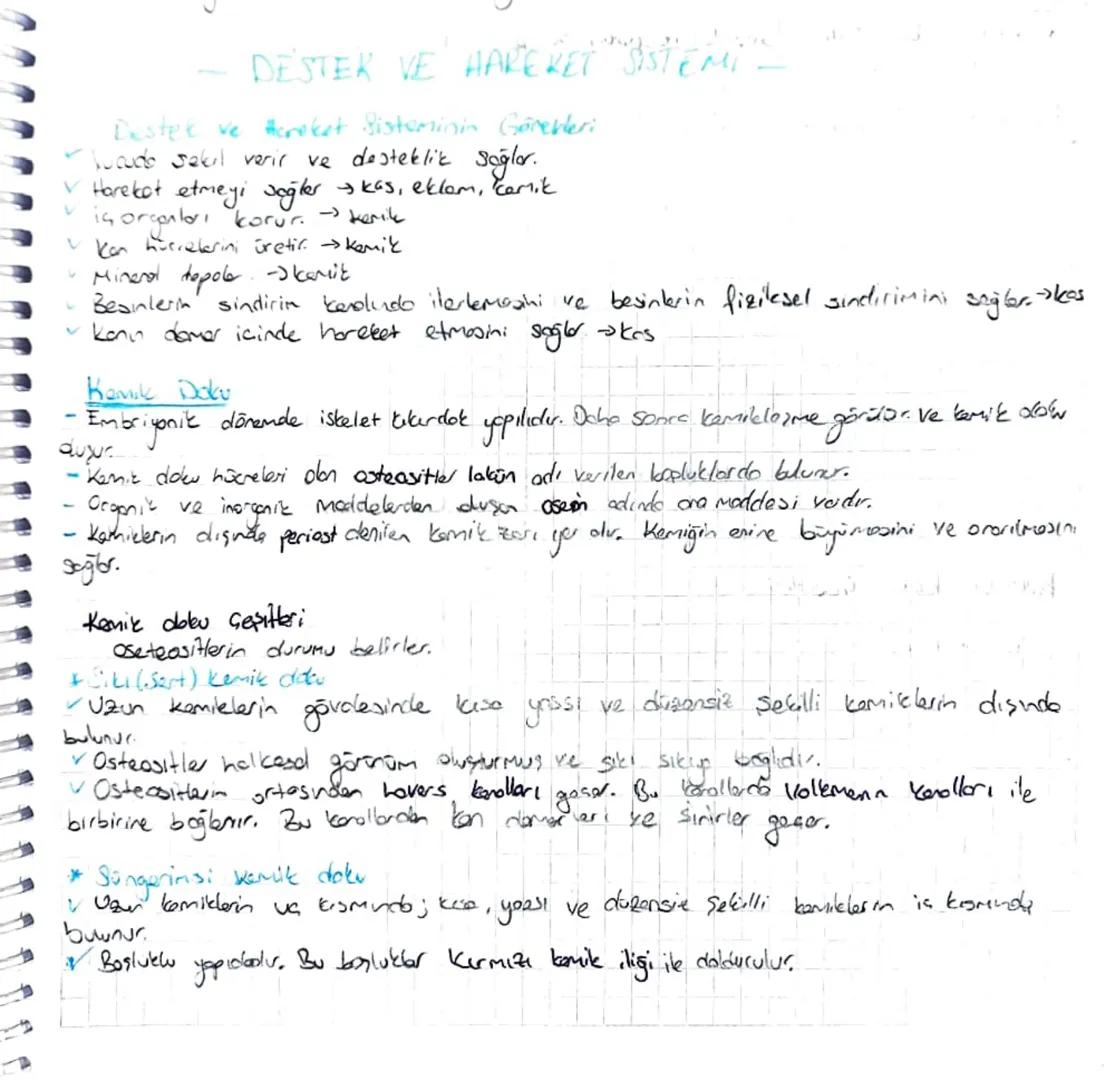 - DESTEK VE HAREKET SİSTEMİ -
Destek ve Hareket Sisteminin Görevleri
✓ Vücuda şekil verir ve desteklik sağlar.
✓ Hareket etmeyi sağlar → kas, eklem, kemik
✓ iç organları korur. → kemik
✓ Kan hücrelerini üretir. → kemik
✓ Mineral depolar. → kemik
✓ Besinlerin sindirim kanalında ilerlemesini ve besinlerin fiziksel sindirimini sağlar. → kas
✓ kanın damar içinde hareket etmesini sağlar → kas
Kemik Doku
- Embriyonik dönemde iskelet kıkırdak yapılıdır. Daha sonra kemikleşme görülür ve kemik doku
oluşur.
- Kemik doku hücreleri olan osteositler lakün adı verilen boşluklarda bulunur.
- Organik ve inorganik maddelerden oluşan osein adında ara maddesi vardır.
- Kemiklerin dışında periost denilen kemik zarı yer alır. Kemiğin enine büyümesini ve onarılmasını
sağlar.
Kemik doku Çeşitleri
Oseteositlerin durumu belirler.
* Sıkı (Sert) kemik doku
✓ Uzun kemiklerin gövdesinde kısa yassı ve düzensiz şekilli kemiklerin dışında
bulunur.
✓ Osteositler halkasal görünüm oluşturmuş ve sıkı sıkıya bağlıdır.
✓ Osteositlerin ortasından havers kanalları geçer. Bu kanallarda Volkmann kanalları ile
birbirine bağlanır. Bu kanallardan kan damarları ve sinirler geçer.
* Süngerimsi kemik doku
✓ Uzun kemiklerin uç kısmında; kısa, yassı ve düzensiz şekilli kemiklerin iç kısmında
bulunur.
✓ Boşluklu yapıdadır. Bu boşluklar kırmızı kemik iliği ile doldurulur.